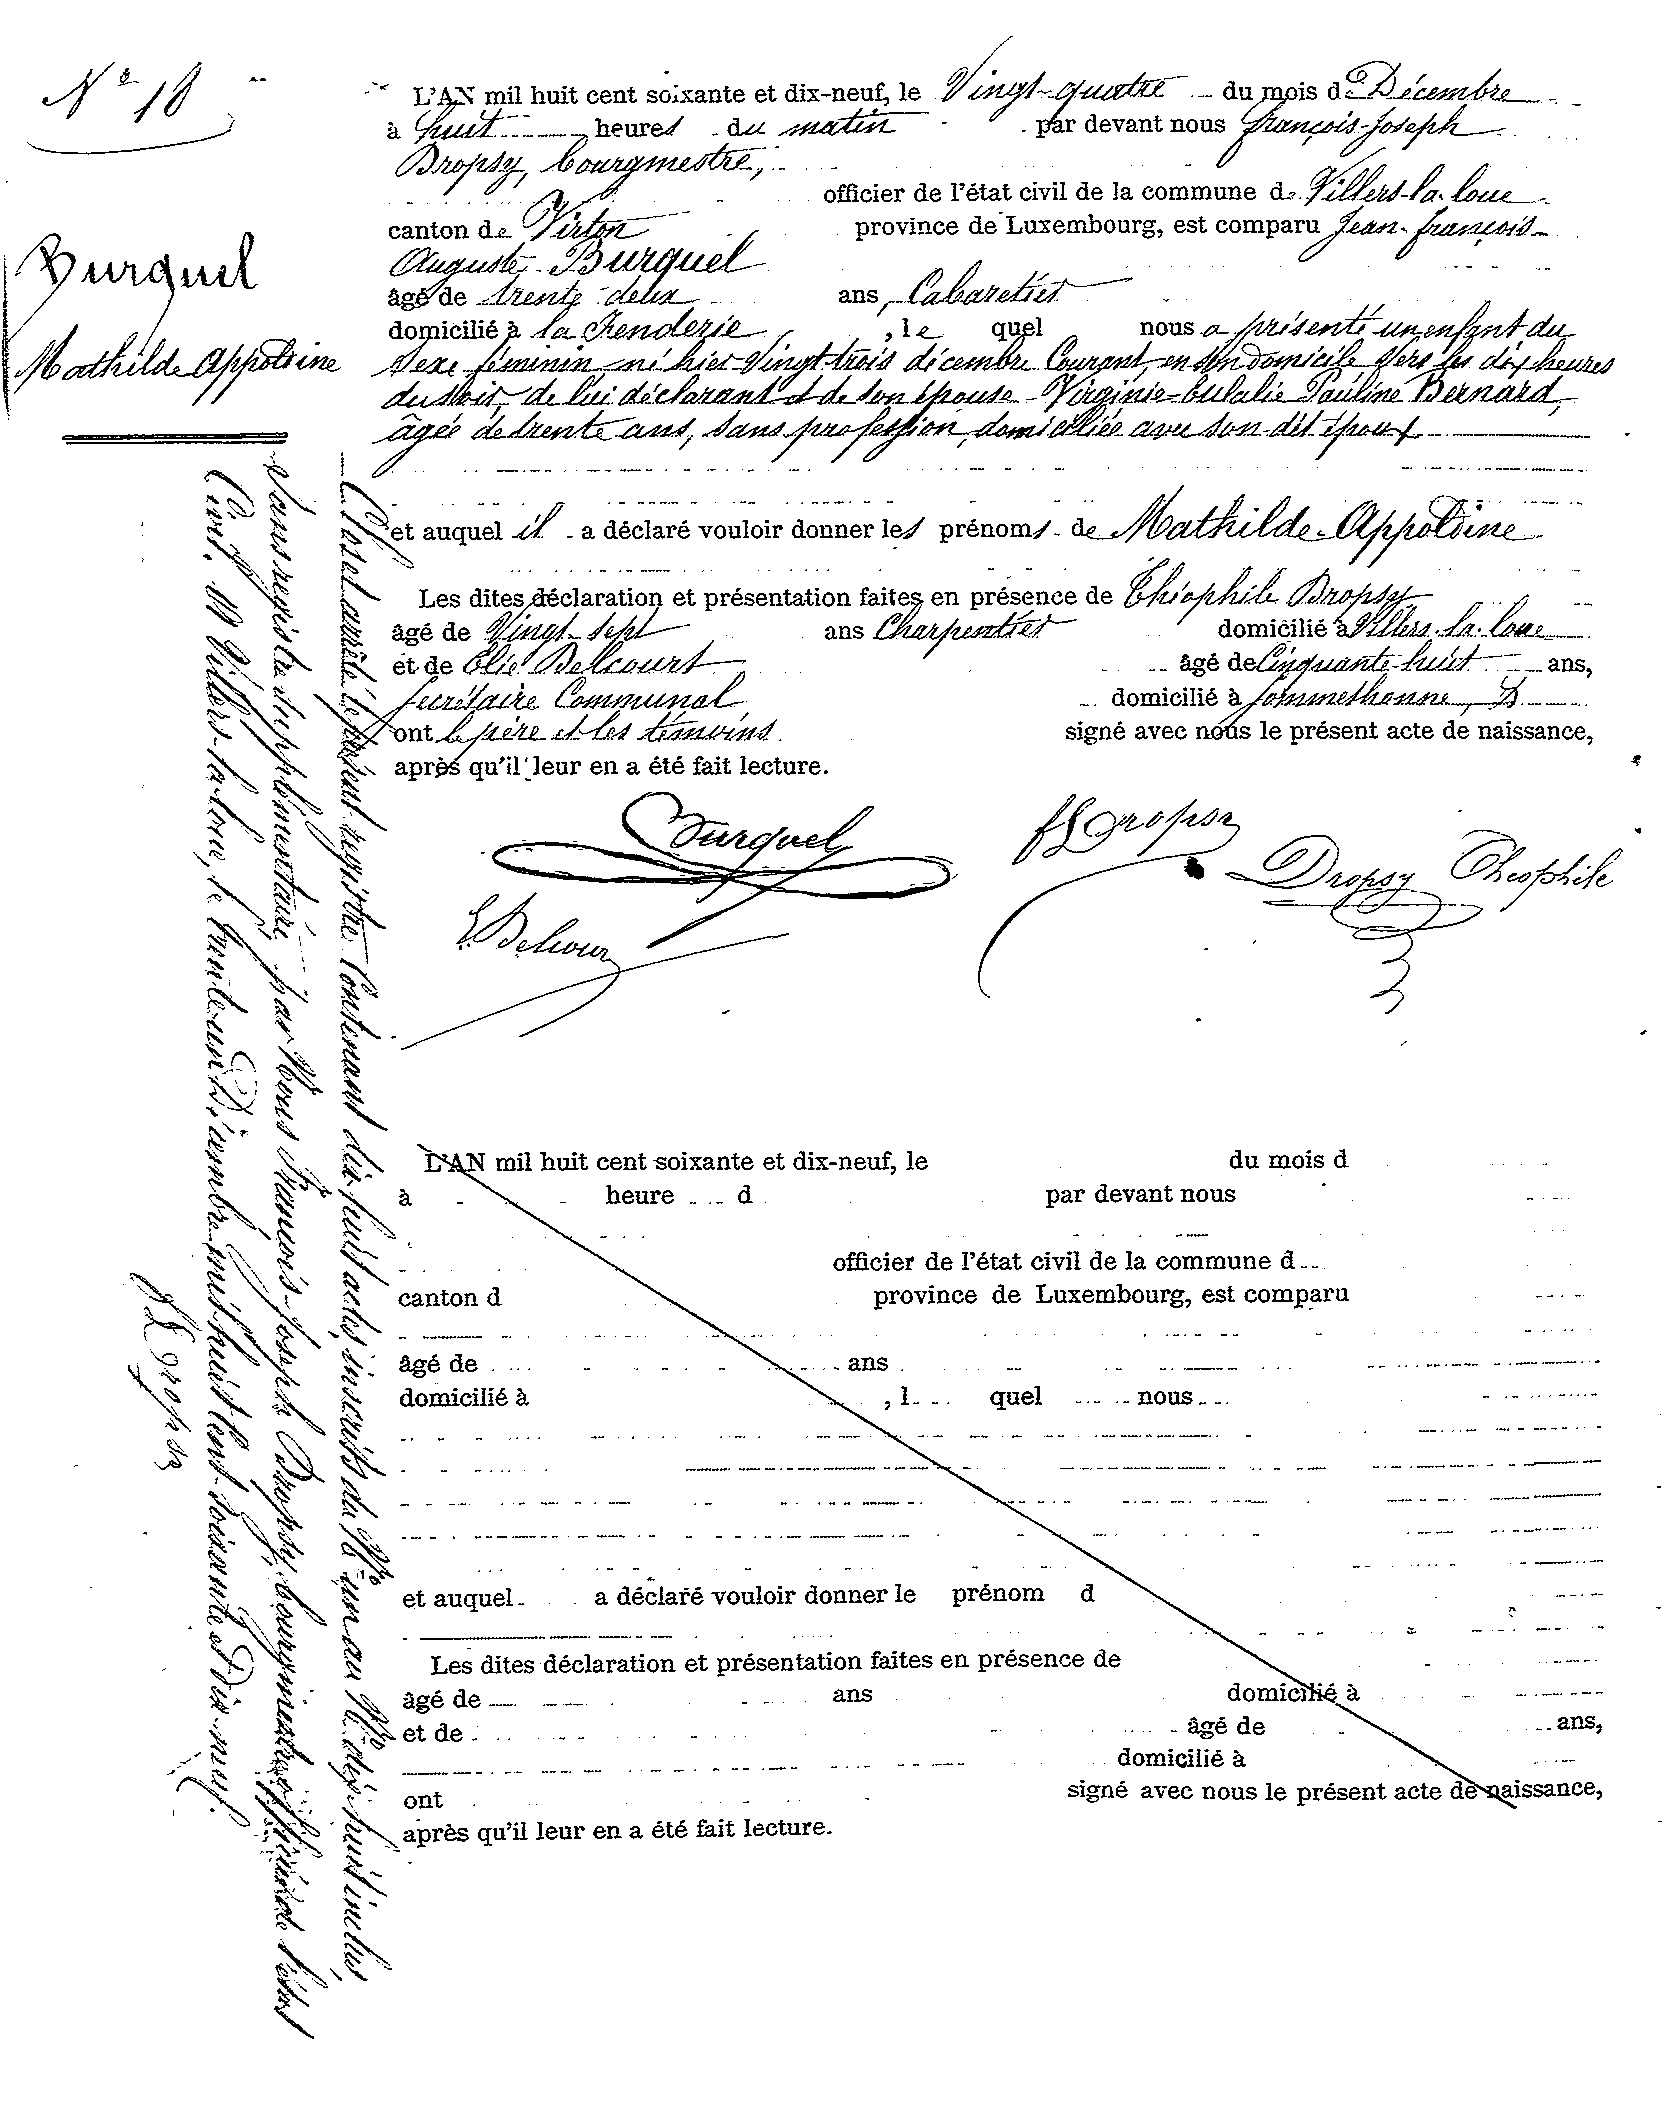 Nº 18
Burquel
Mathilde Appoloine
L'AN mil huit cent soixante et dix-neuf, le Vingt-quatre du mois de Décembre
à huit heures du matin par devant nous françois-Joseph
Dropsy, bourgmestre,
officier de l'état civil de la commune de Villers-la-loue
canton de Virton province de Luxembourg, est comparu Jean-françois-
Auguste Burquel
âgé de trente-deux ans, Cabaretier
domicilié à la Fenderie, le quel nous a présenté un enfant du
sexe féminin, né hier Vingt-trois décembre Courant, en son domicile vers les dix heures
du soir, de lui déclarant et de son épouse Virginie-Eulalie Pauline Bernard,
âgée de trente ans, sans profession, domiciliée avec son dit époux
et auquel il a déclaré vouloir donner les prénoms de Mathilde-Appoloine
Les dites déclaration et présentation faites en présence de Théophile Dropsy
âgé de Vingt-sept ans Charpentier domicilié à Villers-la-loue
et de Elie Delcourt âgé de Cinquante-huit ans,
secrétaire Communal domicilié à Sommethonne,
ont le père et les témoins signé avec nous le présent acte de naissance,
après qu'il leur en a été fait lecture.
Burquel
fJDropsy
Dropsy Théophile
E. Delcour
Clos et arrêté le présent registre Contenant dix-huit actes inscrits du Nº un au Nº dix-huit inclus
sans registre supplémentaire, par Nous François-Joseph Dropsy, bourgmestre, officier de l'état
Civil. A Villers-la-loue, le trente-un Décembre mil huit Cent soixante et Dix-neuf.
fJDropsy
L'AN mil huit cent soixante et dix-neuf, le du mois d
à heure d par devant nous
officier de l'état civil de la commune d
canton d province de Luxembourg, est comparu
âgé de ans
domicilié à , l quel nous
et auquel a déclaré vouloir donner le prénom d
Les dites déclaration et présentation faites en présence de
âgé de ans domicilié à
et de âgé de ans,
domicilié à
ont signé avec nous le présent acte de naissance,
après qu'il leur en a été fait lecture.